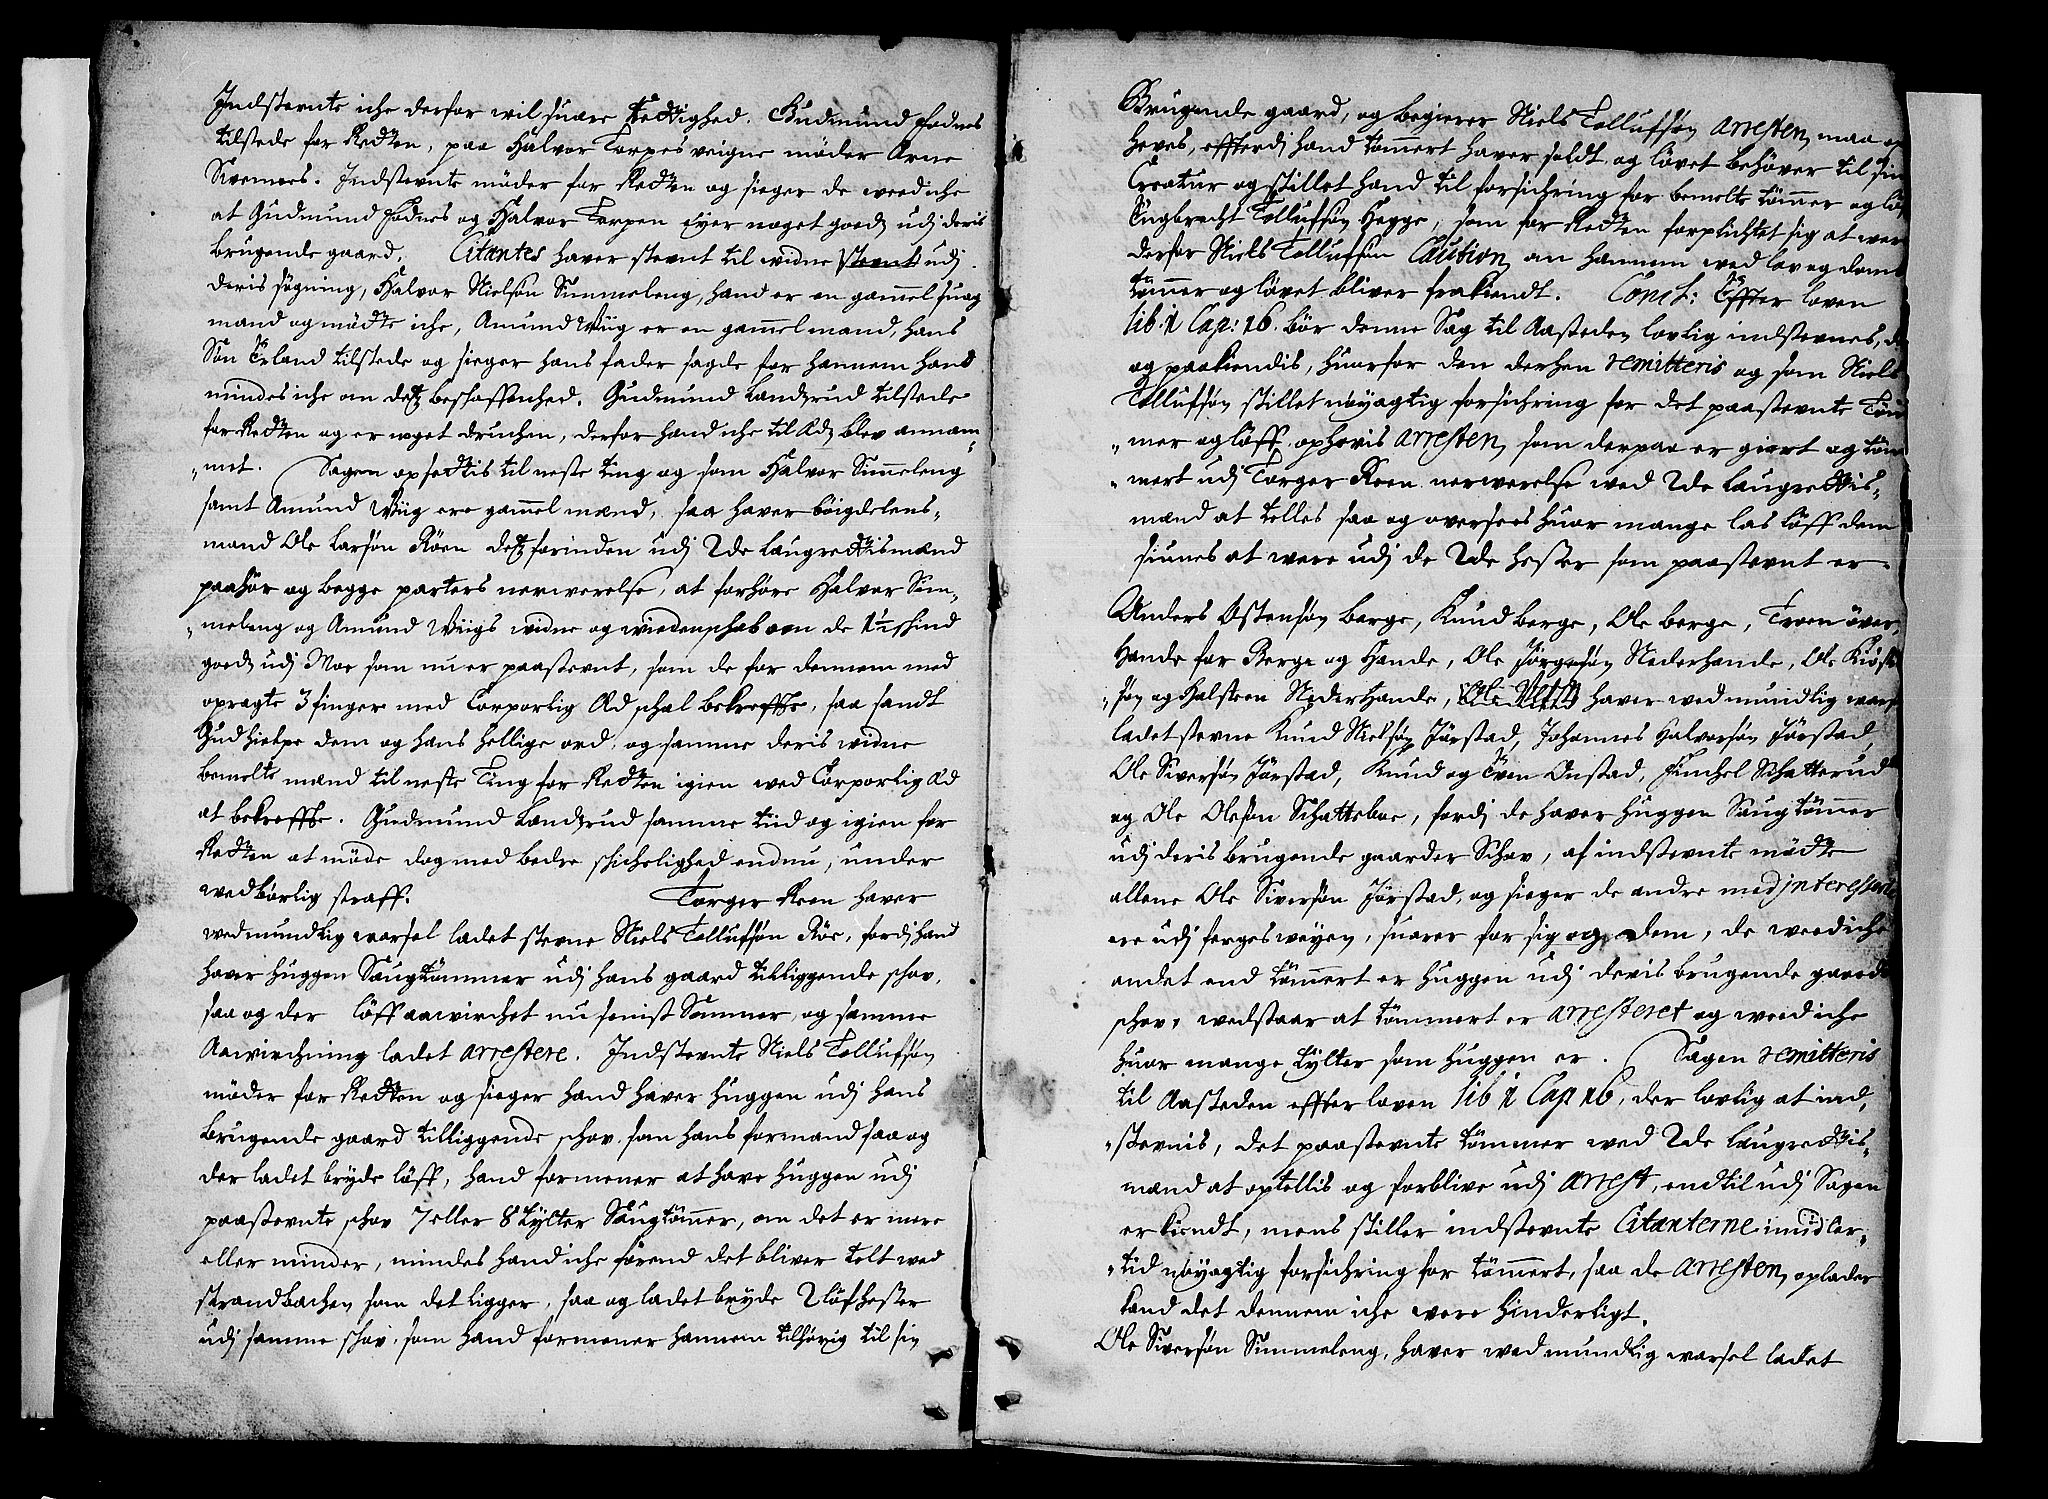 Indstevnte iche derfor wil suare Rettighed. Gudmund Fodnes
tilstede for Retten, paa Halvor Torpes veigne møder Arne
Sivernes. Indstevnte møder for Retten og sieger de weed iche
at Gudmund Fodnes og Halvor Torpen Eyer noget goeds udj deris
brugende gaard. Citantes haver stevnt til widne stevnt udj
deris søgning, Halvor Nielsøn Simmeleng, hand er en gammel suag
mand og mødte iche, Amund Wiig er en gamel mand, hans
Søn Erland tilstede og sieger hans fader sagde for hannem hand
mindes iche om dets beschaffenhed. Gudmund Landsrud tilstede
for Retten og er noget druchen, derfor hand iche til Æd blev annam¬
¬met. Sagen opsettis til neste ting og som Halvor Simeleng
samt Amund Wiig ere gammel mænd, saa haver böigdelens¬
mand Ole Larsøn Röen dets forinden udj 2de Laugrettismænd
paahör og begge parters nerwerelse, at forhøre Halvor Sim¬
¬meleng og Amund Wiigs widne og wiedenschab om de 1½ skind
goeds udj Moe som nu er paastevnt, som de for dennem med
opragte 3 finger med Corporlig Æd schal bekreffte, saa sandt
Gud hielpe dem og hans hellige ord, og samme deris widne
bemelte mænd til neste Ting for Retten igien wed Corporlig Æd
at bekreffte. Gudmund Landsrud samme tiid og igien for
Retten at møde dog med bedre schichelighed endnu, under
wedbørlig straff. Torger Roen haver
wed mundtlig warsel ladet stevne Niels Tollufsøn Röe, fordj hand
haver huggen Saugtömmer udj hans gaard tilliggende schov,
saa og der löff aawirchet nu senist Sommer, og samme
Aawirchning ladet arrestere. Indstevnte Niels Tollufsøn
møder for Retten og sieger hand haver huggen udj hans
brugende gaard tilliggende schov, som hans formand saa og
der ladet bryde löff, hand formener at have huggen udj
paastevnte schov 7 eller 8 tylter Saugtömer, om det er mere
eller minder, mindes hand iche förend det bliver telt wed
strandbachen som det ligger, saa og ladet bryde 2 löfhester
udj samme schov, som hand formener hannem tilhörig til sin
Brugende gaard, og begierer Niels Tollufsøn arresten maa op
heves, effterdj hand tömert haver soldt, og lövet behøver til sin
Creatur og stillet hand til forsichring for bemelte tömer og löf
Engbrecht Tollufsøn Hegge, som for Retten forplichtet sig at wer
derfor Niels Tollufsøn Caution, om hannem wed lov og domb
tömer og lövet bliver frakiendt. Concl: Effter loven
lib 1 Cap: 16. bör denne Sag til Aasteden lovlig indstevnes,
og paakiendis, huorfor den derhen remitteris og som Niels
Tollufsøn stillet nøyagtig forsichring for det paastevnte Töm
¬mer og löff, ophevis arresten, som derpaa er giort og töm
¬mert udj Torger Roen nerwerelse wed 2de Laugrettis¬
mænd at telles saa og oversees huor mange las löff dem
siunes at were udj de 2de hester som paastevnt er.
Anders Ostensøn Berge, Knud Berge, Ole Berge, Troen över¬
Hande for Berge og Hande, Ole Jörgensøn Nederhande, Ole Kiöst
¬søn og Halsteen Nederhande, haver wed mundlig wars
ladet stevne Knud Nielsøn Jörstad, Johannes Halvorsøn Jörstad
Ole Siversøn Jörstad, Knud og Even Onstad, Finchel Schatterud
og Ole Olesøn Schatteboe, fordj de haver huggen Saugtömmer
udj deris brugende gaarder Schov, af indstevnte mødte
allene Ole Siversøn Jörstad, og sieger de andre med interessent
ere udj ferges weyen, suarer for sig og dem, de weed iche
andet end tömert er huggen udj deris brugende gaarde
schov, wedstaar at tömmert er arresteret og weed iche
huor mange tylter som huggen er. Sagen remitteris
til Aasteden effter loven lib 1 Cap 16, der lovlig at ind¬
¬stevnis, det paastevnte tömmer wed 2de Laugrettis¬
mænd at optellis og forblive udj arrest, endtil udj Sagen
er kiendt, mens stiller indstevnte Citanterne imidler¬
¬tid nøyagtig forsichring for tömert, saa de arresten oplader
kand det dennem iche were hinderligt.
Ole Siversøn Simmeleng, haver wed mundtlig warsel ladet